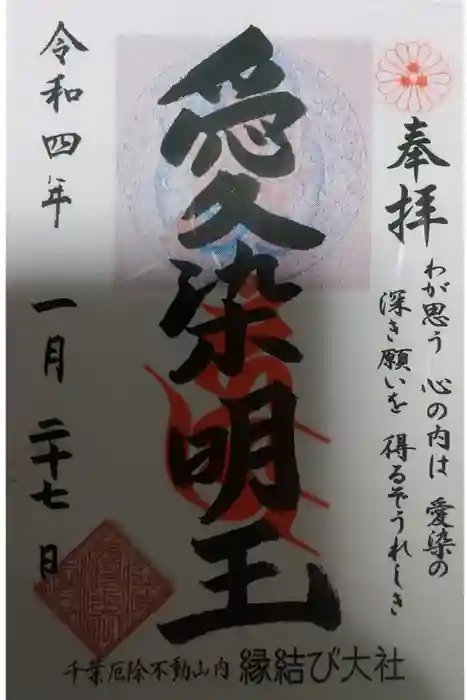 奉拝
わが思う 心の内は 愛染の
深き願いを 得るぞうれしき
愛染明王
令和四年
一月 二十七 日
千葉厄除不動山内 縁結び大社